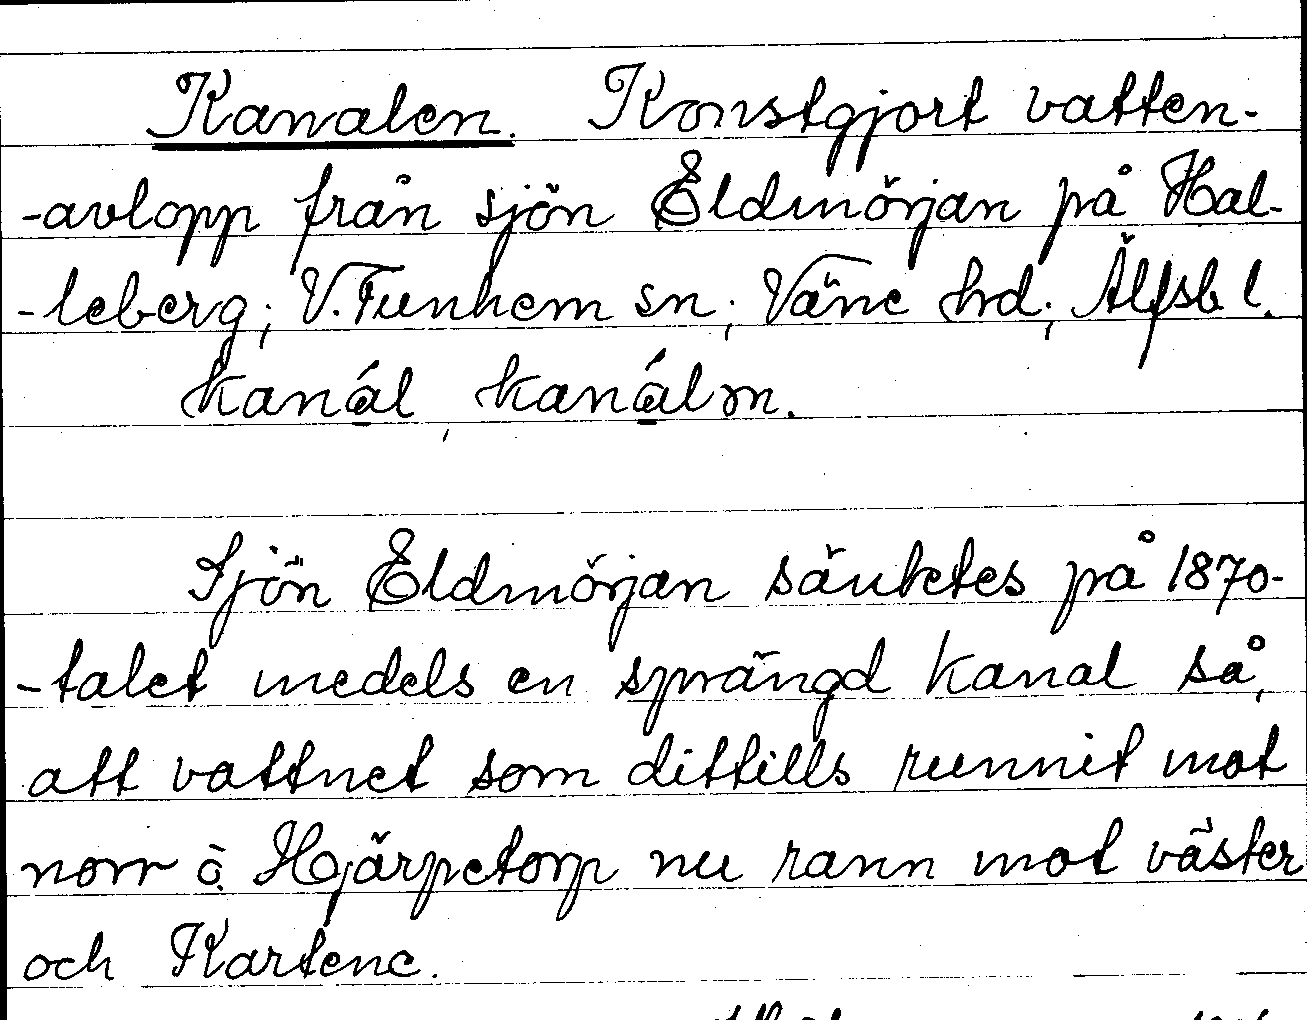 Kanalen. Konstgjort vatten-
-avlopp från sjön Eldmörjan på Hal-
-leberg; V. Tunhem sn; Väne hd; Älfsb l.
kanál, kanálm.
Sjön Eldmörjan sänktes på 1870-
-talet medels en sprängd kanal så,
att vattnet som dittills runnit mot
norr o. Hjärpetorp nu rann mot väster
och Kartene.